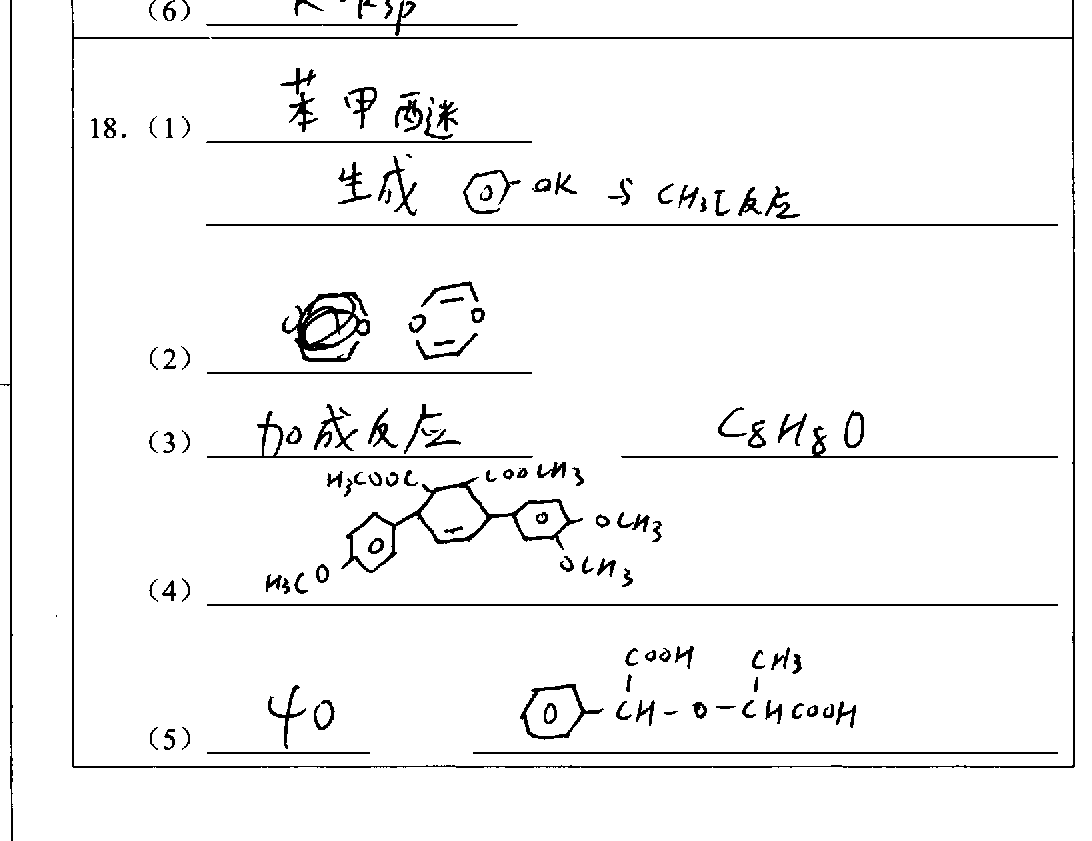 (6) K·Ksp
18.(1) 苯甲醚
生成 -OK 与 CH3I反应
O O
(2)
(3) 加成反应 C8H8O
H3COOC COOCH3
OCH3
H3CO OCH3
(4)
COOH CH3
(5) 40 CH-O-CHCOOH